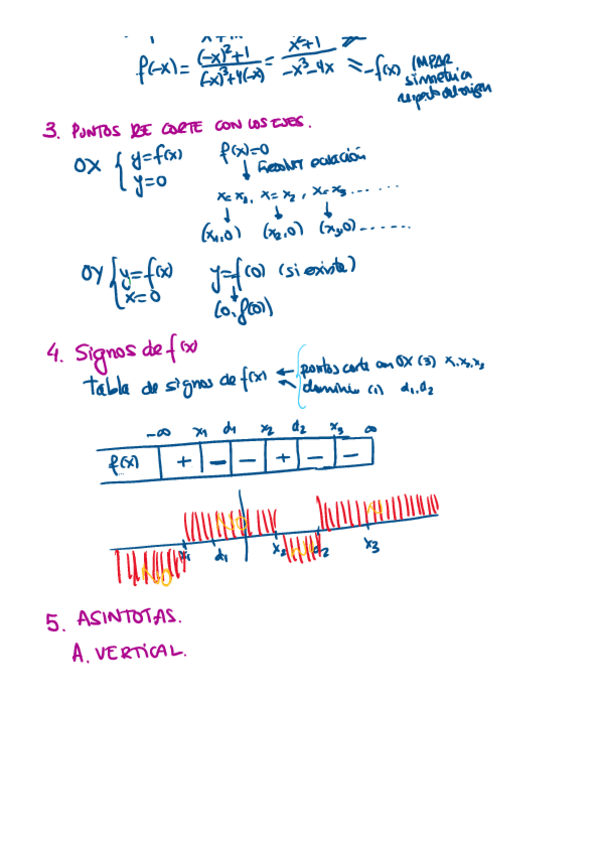 f(-x) = (-x)²+1 / (-x)³+4(-x) = x²+1 / -x³-4x = -f(x) IMPAR
simetria
respecto del origen
3. PUNTOS DE CORTE CON LOS EJES.
OX { y=f(x) f(x)=0
y=0 ↓ Resolver ecuación
x=x₁, x=x₂, x=x₃ ......
↓ ↓ ↓
(x₁,0) (x₂,0) (x₃,0) ------
OY { y=f(x) y=f(0) (si existe)
x=0 ↓
(0, f(0))
4. Signos de f(x)
tabla de signos de f(x) ← puntos corte con OX (3) x₁,x₂,x₃
← dominio (1) d₁,d₂
-∞ x₁ d₁ x₂ d₂ x₃ ∞
f(x) + - - + - -
NO
x₁ d₁ x₂ d₂ x₃
NO
5. ASINTOTAS.
A. VERTICAL.